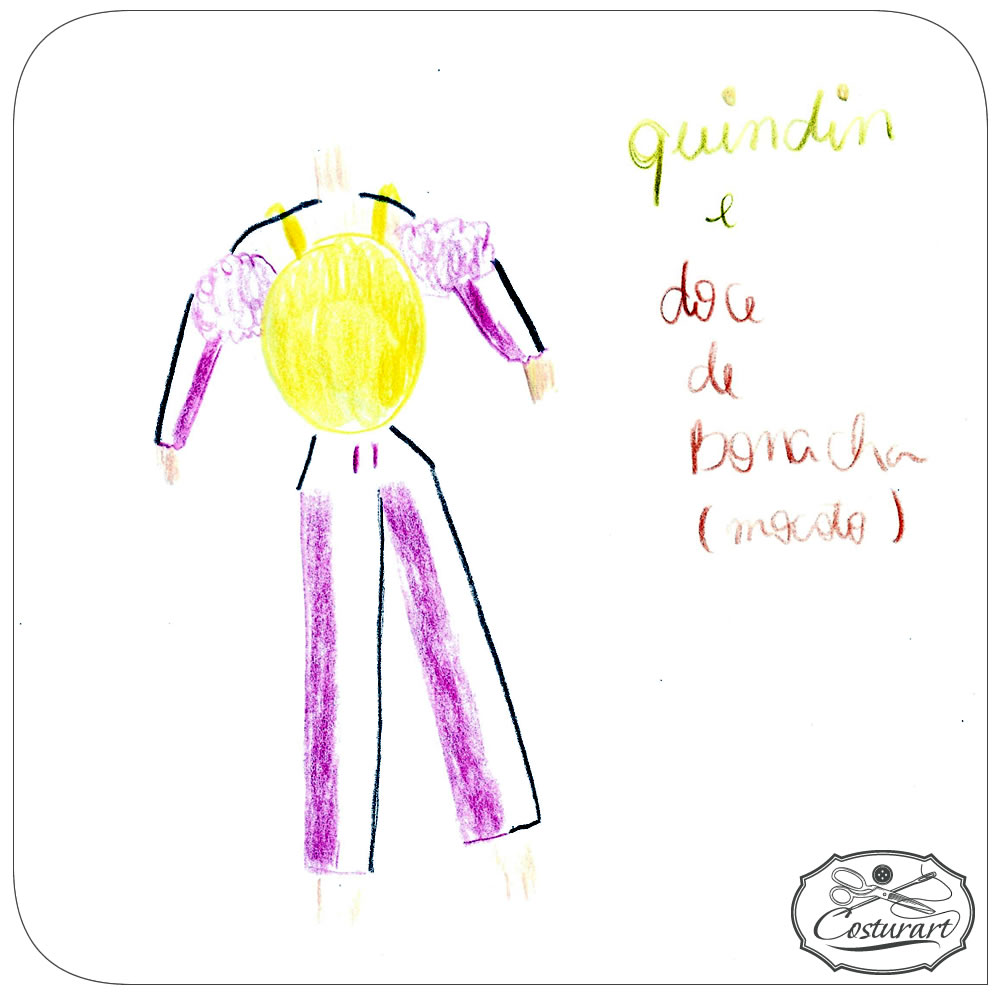 quindin
e
doce
de
Bonacha
(mocoto)
Costurart